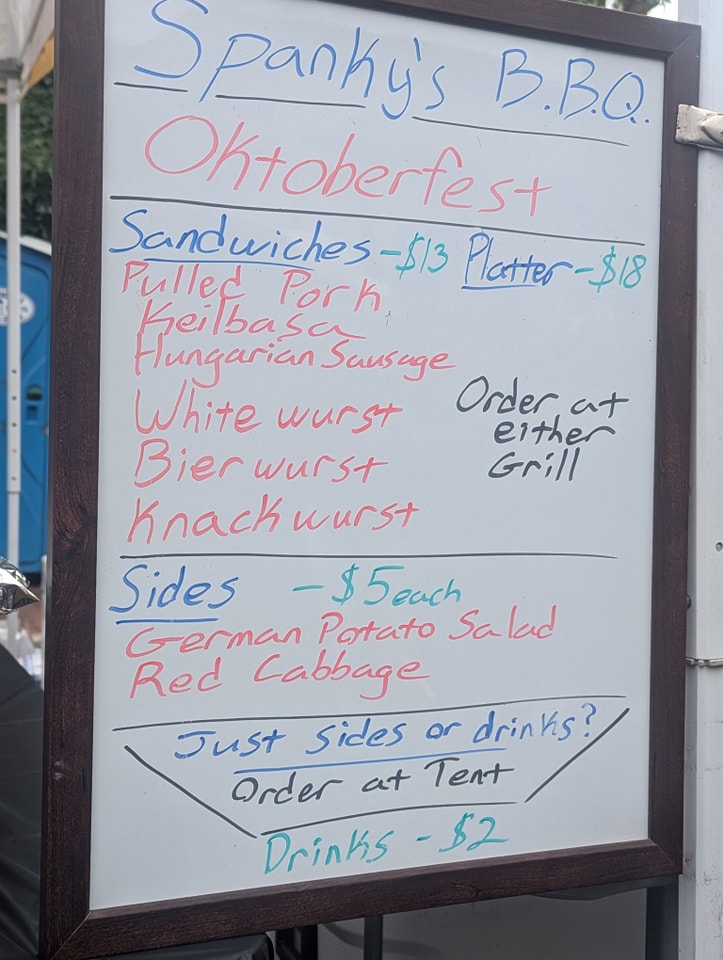 Spanky's B.B.Q.
Oktoberfest
Sandwiches - $13 Platter - $18
Pulled Pork
Keilbasa
Hungarian Sausage
White wurst
Bier wurst
Knack wurst
Order at
either
Grill
Sides - $5 each
German Potato Salad
Red Cabbage
Just sides or drinks?
Order at Tent
Drinks - $2